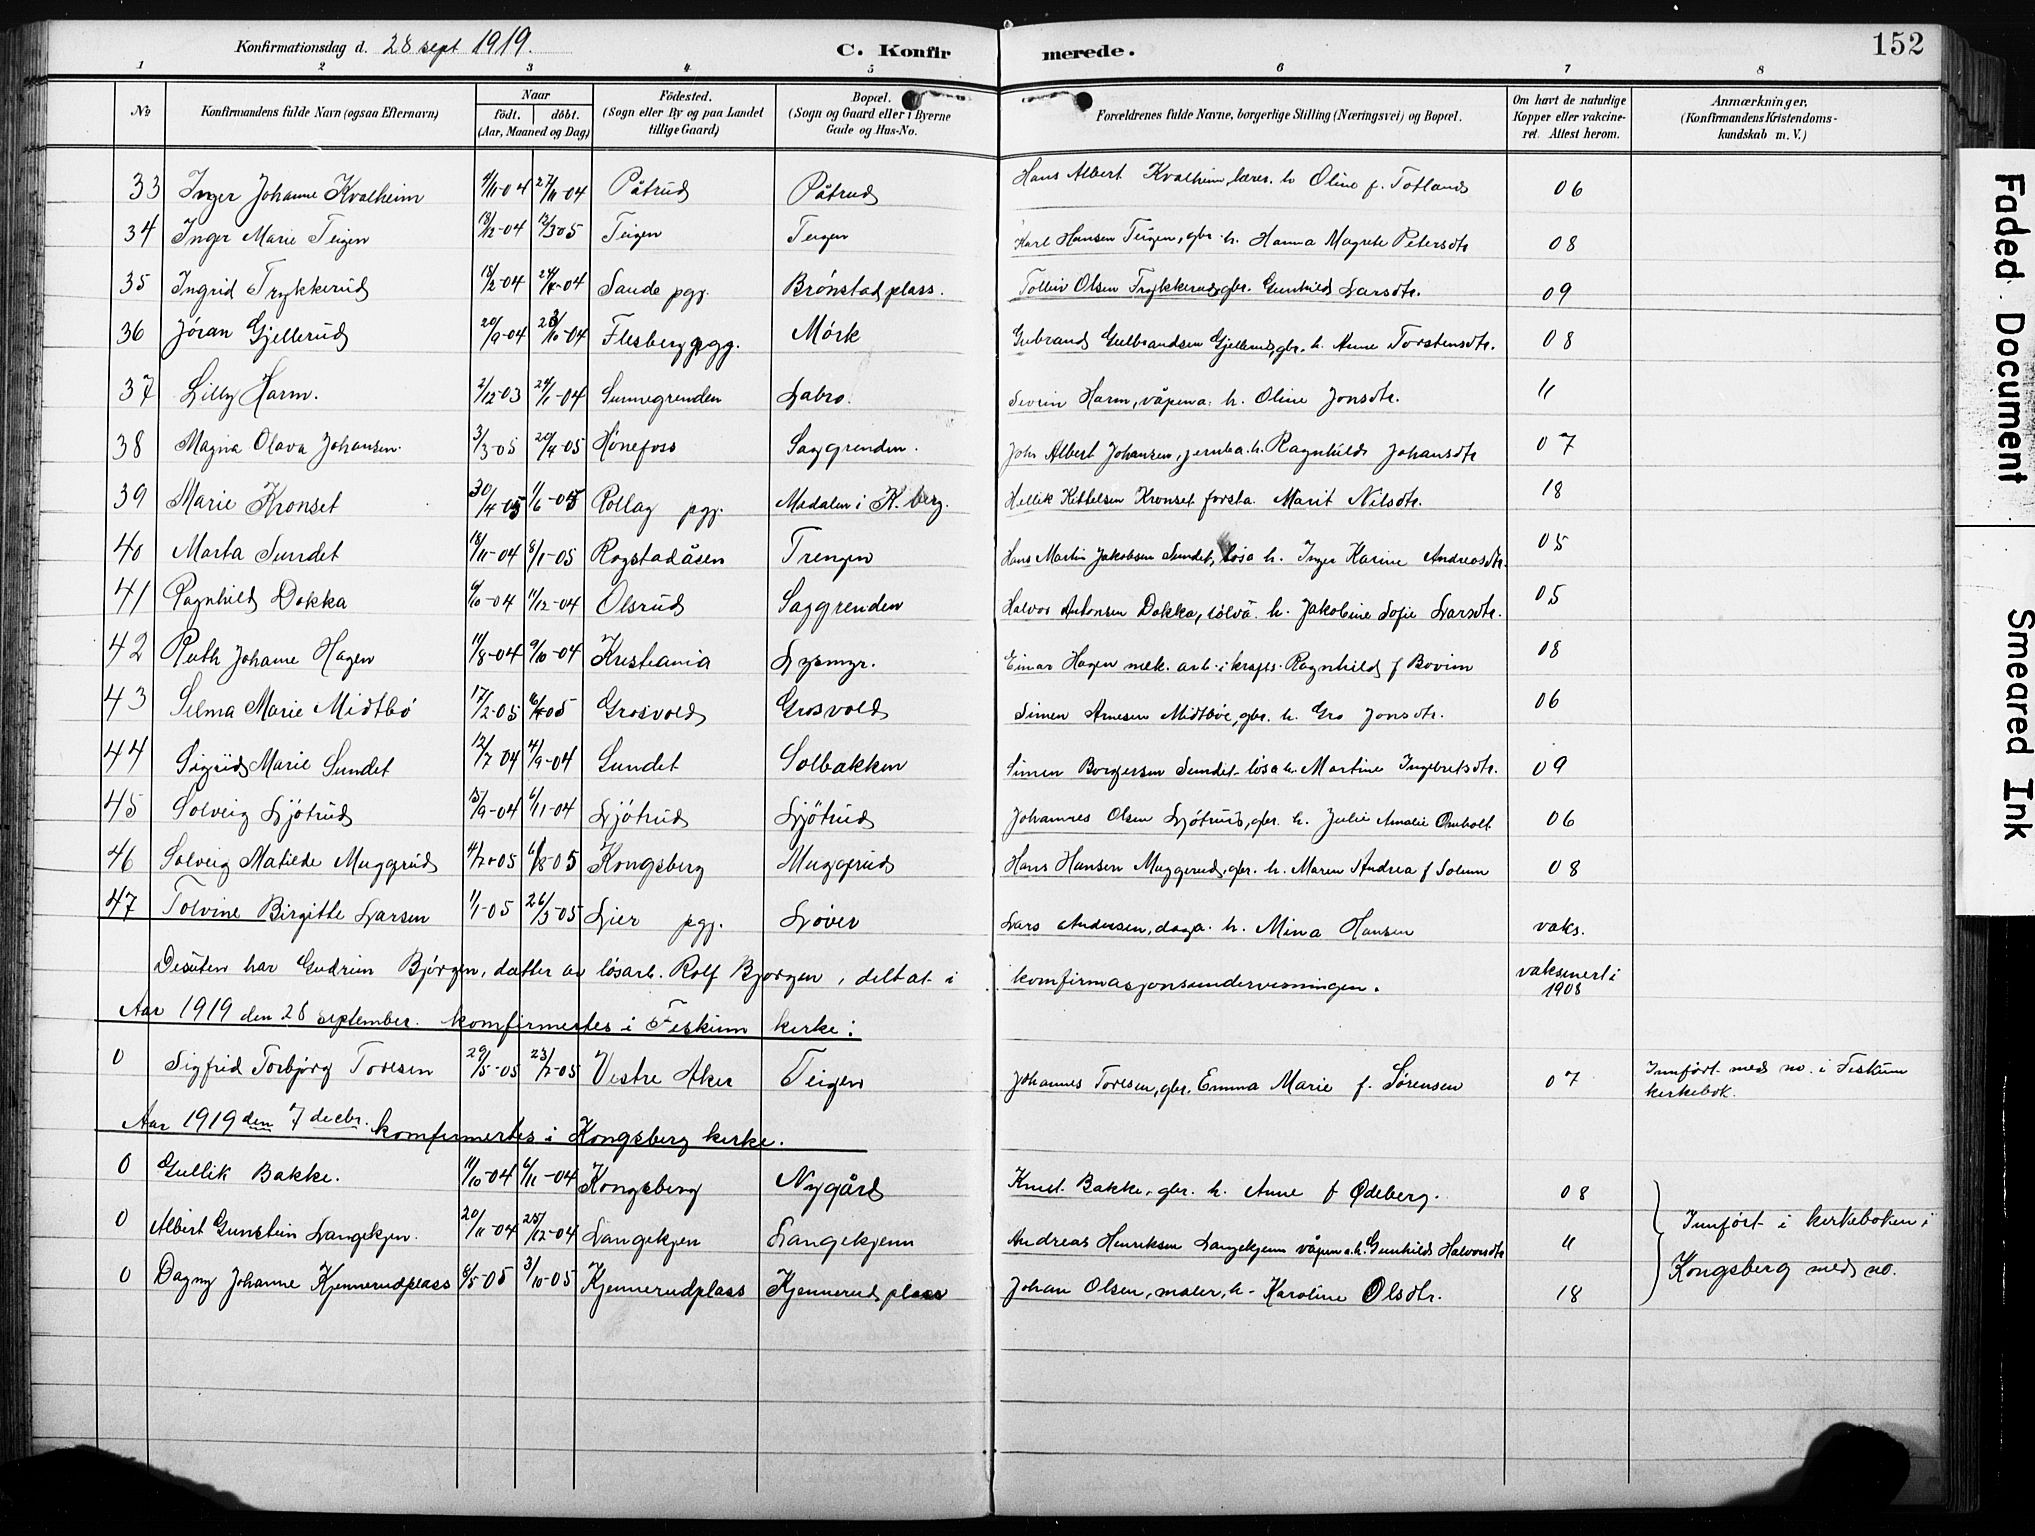 Konfirmationsdag d. 28 sept 1919. C. Konfirmerede. 152
1 2 3 4 5 6 7 8
No Konfirmandens fulde Navn (ogsaa Efternavn) Naar födt. döbt. (Aar, Maaned og Dag) Födested. (Sogn eller By og paa Landet tillige Gaard) Bopæl. (Sogn og Gaard eller i Byerne Gade og Hus-No. Forældrenes fulde Navne, borgerlige Stilling (Næringsvei) og Bopæl. Om havt de naturlige Kopper eller vakcineret. Attest herom. Anmærkninger. (Konfirmandens Kristendomskundskab m. V.)
33 Inger Johanne Kvalheim 4/11-04 27/11-04 Påtrud Påtrud Hans Albert Kvalheim, lærer. h Oline f. Totland 06
34 Inger Marie Teigen 13/12-04 12/3-05 Teigen Teigen Karl Hansen Teigen, gbr. h. Hanna Magrete Petersdtr 08
35 Ingrid Trykkerud 18/2-04 24/4-04 Sande pgj. Brønstad plass. Tollev Olsen Trykkerud, gbr. Gunhild Larsdtr. 09
36 Jøran Gjellerud 20/9-04 23/10-04 Flesberg pgj. Mörk Gubrand Gulbrandsen Gjellerud, gbr. h. Anne Torstensdtr. 08
37 Lilly Harm. 2/12-03 24/1-04 Sunnegrenden Labro. Sevrin Harm, våpena. h. Oline Jonsdtr. 11
38 Magna Olava Johansen. 3/3-05 20/4-05 Hönefoss Saggrenden. John Albert Johansen, jernba. h. Ragnhild Johansdtr 07
39 Marie Kronset 30/4-05 11/6-05 Rollag pgj. Madalen i K.berg. Hellik Kittelsen Kronset forsta. Marit Nilsdtr. 18
40 Marta Sundet 18/11-04 8/1-05 Rogstadåsen Trengen Hans Martin Jakobsen Sundet, løsa h. Inger Karine Andreasdtr. 05
41 Ragnhild Dokka 6/10-04 11/12-04 Olsrud Saggrenden Halvor Antonsen Dokka, sølva. h. Jakobine Sofie Larsdtr. 05
42 Ruth Johanne Hagen 11/8-04 9/10-04 Kristiania Lysmyr. Einar Hagen mek. arb. i krafts. Ragnhild f Bovim 08
43 Selma Marie Midtbö 17/2-05 16/4-05 Grosvold Grosvold Simen Arnesen Midtböe, gbr. h. Gro Jonsdtr. 06
44 Sigrid Marie Sundet 12/7 04 4/9-04 Sundet Solbakken Simen Borgersen Sundet løsa h. Martine Ingebretsdtr. 09
45 Solveig Ljötrud 15/9-04 6/11-04 Ljötrud Ljötrud Johannes Olsen Ljötrud, gbr. h. Julie Amalie Omholt 06
46 Solveig Matilde Muggerud 4/7-05 6/8-05 Kongsberg Muggerud Hans Hansen Muggerud, gbr. h. Maren Andrea f Solum 08
47 Tolvine Birgitte Larsen 11/1-05 26/3-05 Lier pgj. Löver Lars Andersen, daga. h. Mina Hansen vaks.
Desuten har Gudrun Bjørgen, datter av løsarb. Rolf Bjørgen, deltat i komfirmasjonsundervisningen. vaksinert i 1908
Aar 1919 den 28 september. komfirmertes i Fiskum kirke:
0 Sigfrid Torbjørg Toresen 29/5-05 23/7-05 Vestre Aker Teigen Johannes Toresen, gbr. Emma Marie f. Sørensen 07 Innført med no. i Fiskum kirkebok.
Aar 1919 den 7 decbr. komfirmertes i Kongsberg kirke.
0 Gullik Bakke. 11/10-04 6/11-04 Kongsberg Nygård Knut Bakke, gbr. h. Anne f Ødeberg. 08
0 Albert Gunstein Langekjen. 20/11-04 25/12-04 Langekjen Langekjenn Andreas Henriksen Langekjenn våpena.h. Gunhild Halvorsdtr 11 Innført i kirkeboken i
0 Dagny Johanne Kjennerudplass 8/5-05 3/10-05 Kjennerudplass Kjennerud plass Johan Olsen, maler, h. Karoline Olsdtr. 18 Kongsberg med no.
Faded Document
Smeared Ink